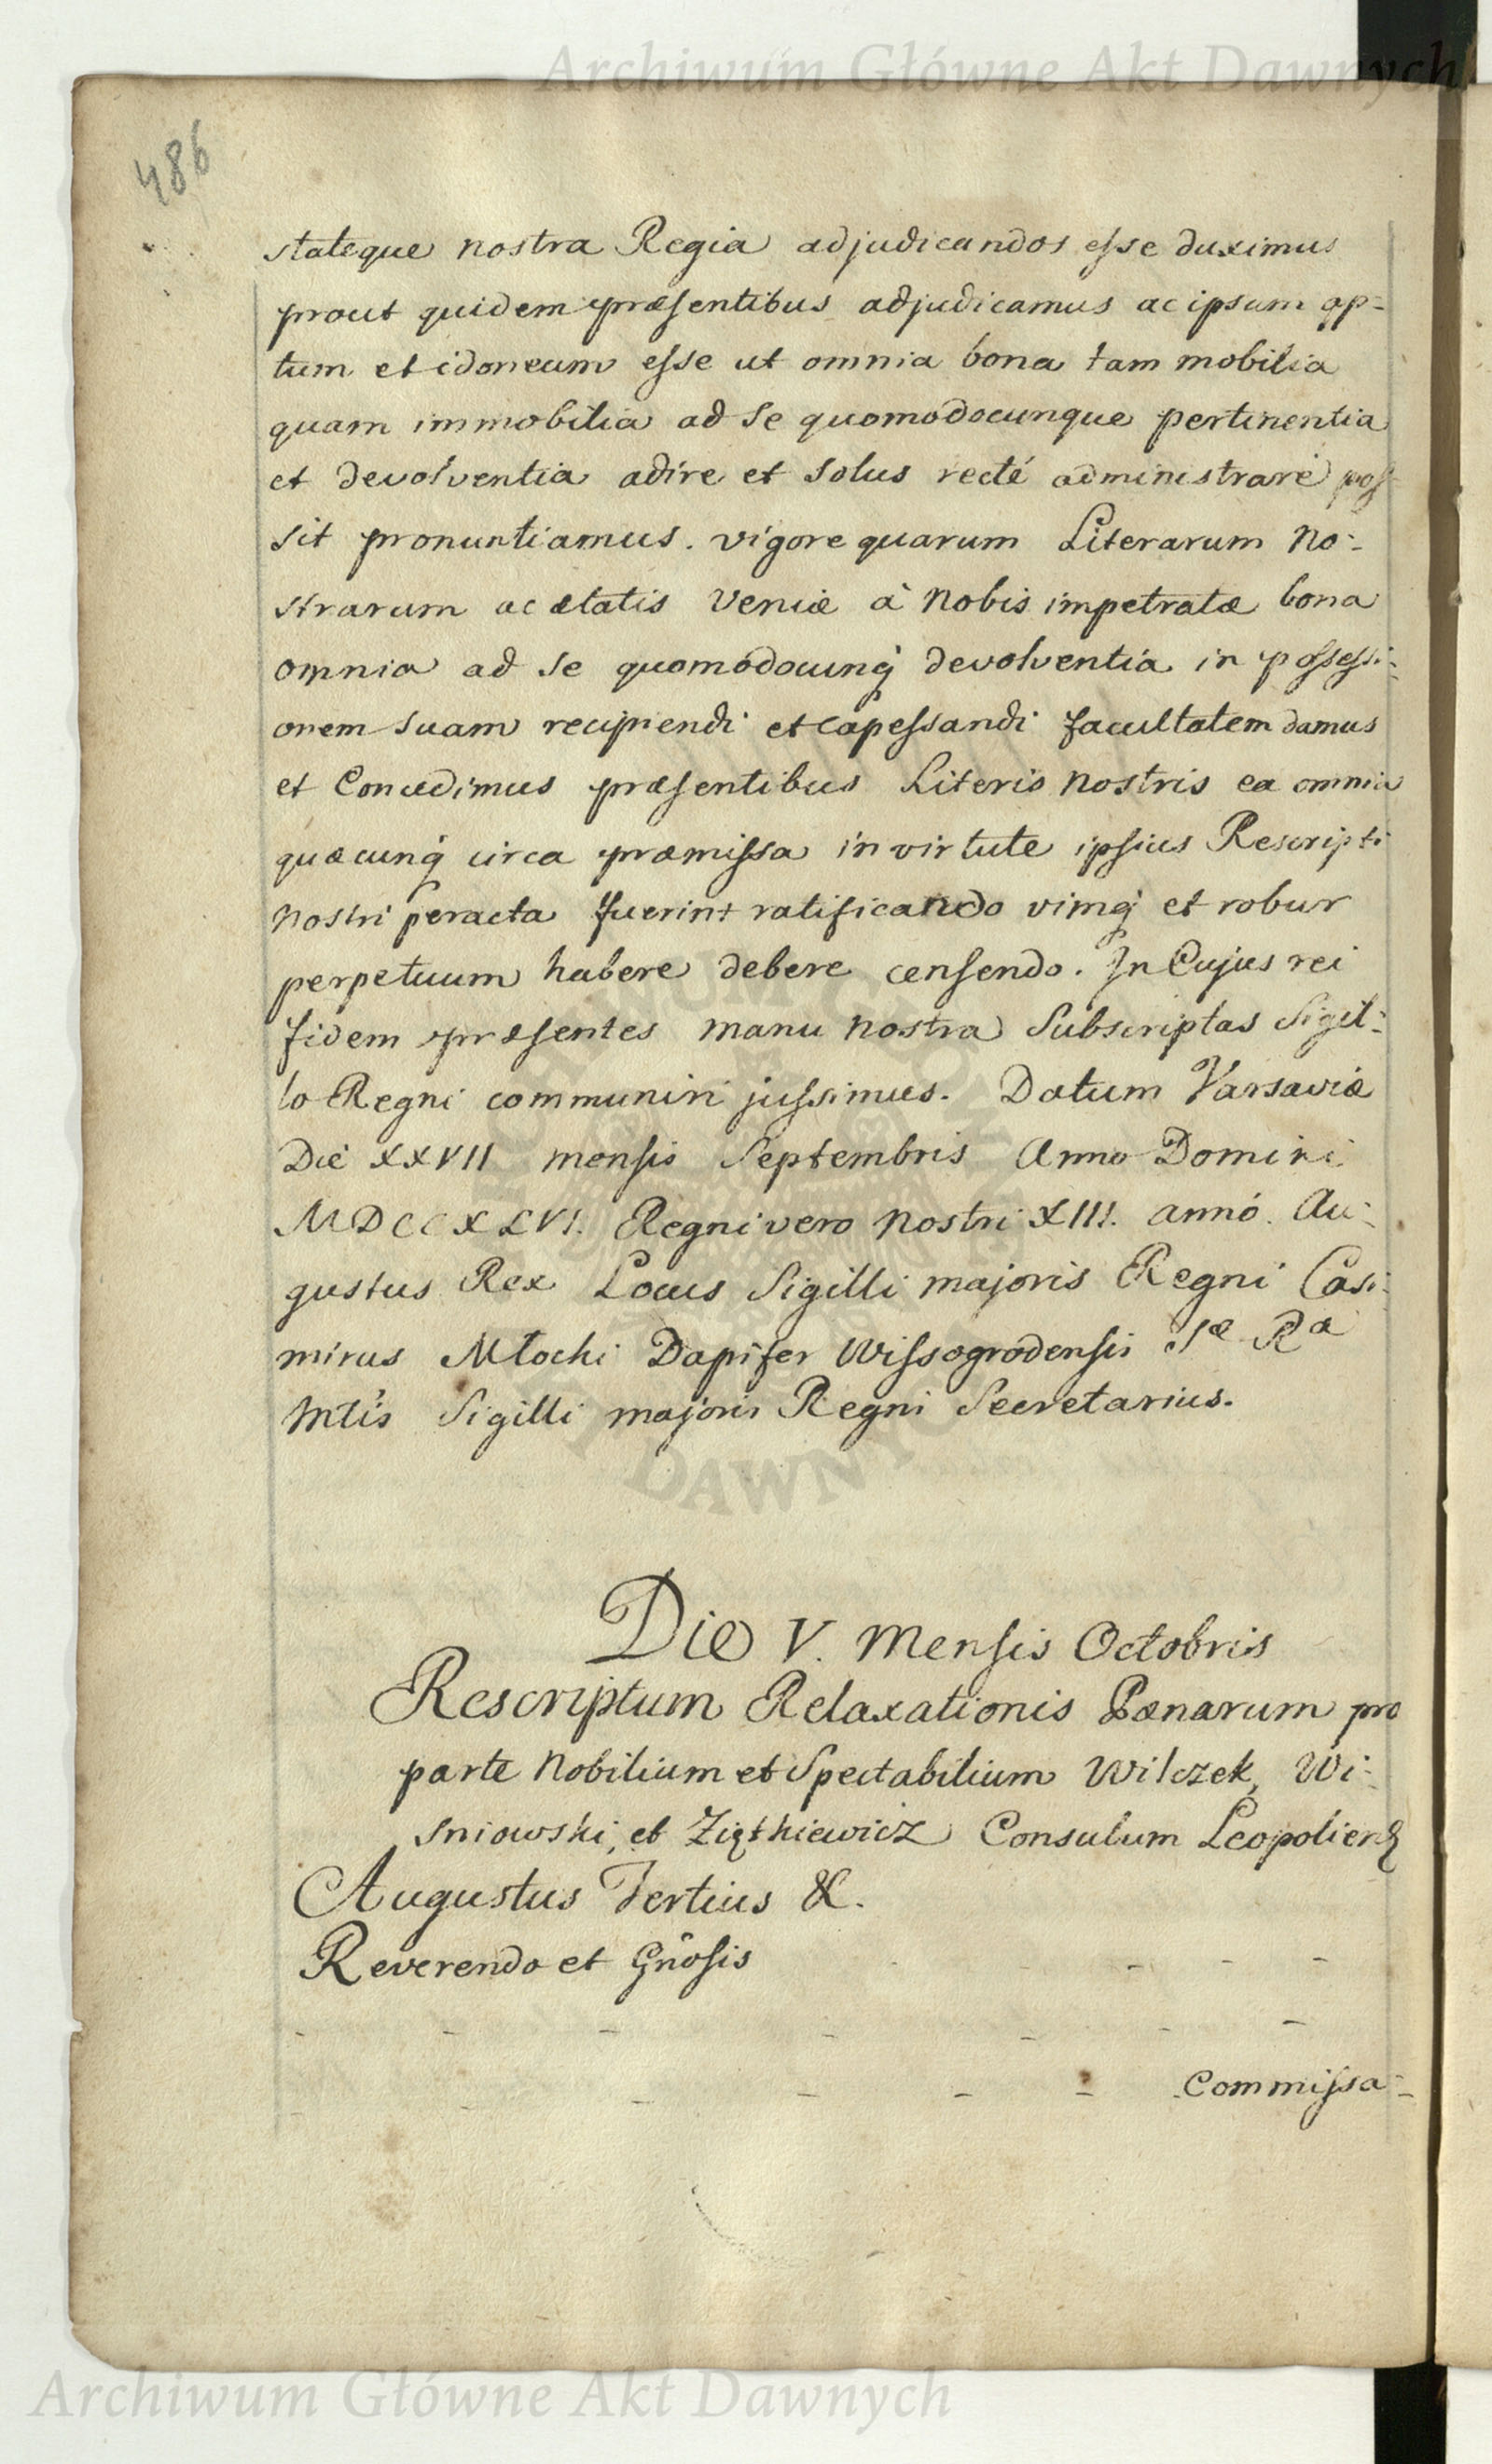 Archiwum Główne Akt Dawnych
486
stateque nostra Regia adjudicandos esse duximus
prout quidem præsentibus adjudicamus ac ipsum ap=
tum et idoneum esse ut omnia bona tam mobilia
quam immobilia ad se quomodocunque pertinentia
et devolventia adire et solus recté administrare pos
sit pronuntiamus. vigore quarum Literarum no=
strarum ac ætatis Veniæ à Nobis impetratæ bona
omnia ad se quomodocunq́ devolventia in possessi=
onem suam recipiendi et capessandi facultatem damus
et Concedimus præsentibus Literis nostris ea omnia
quæcunq́ circa præmissa in virtute ipsius Rescripti
nostri peracta fuerint ratificando vimq́ et robur
perpetuum habere debere censendo. In Cujus rei
fidem præsentes manu nostra Subscriptas Sigil=
lo Regni communiri jussimus. Datum Varsaviæ
Die XXVII mensis Septembris Anno Domini
MDCCXLVI. Regni vero nostri XIII. annó. Au=
gustus Rex Locus Sigilli majoris Regni Casi
mirus Młocki Dapifer Wissogrodensis Sæ Ræ
Mtis Sigilli majoris Regni Secretarius.
Die V. Mensis Octobris
Rescriptum Relaxationis Pænarum pro
parte Nobilium et Spectabilium Wilczek, Wi=
sniowski, et Ziętkiewicz Consulum Leopoliens
Augustus Tertius &.
Reverendo et Gñosis - - - -
- - - - - - -
- - - - - Commissa=
ARCHIWUM GŁÓWNE AKT DAWNYCH
Archiwum Główne Akt Dawnych